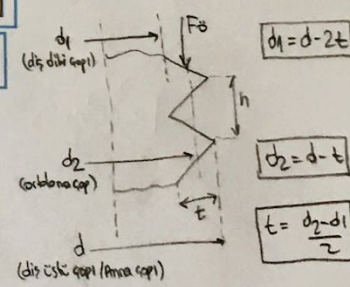 d1
(diş dibi çapı)
Fö
d1 = d - 2t
h
d2
(ortalama çapı)
d2 = d - t
t
t = d2 - d1 / 2
d
(diş üstü çapı / Anma çapı)